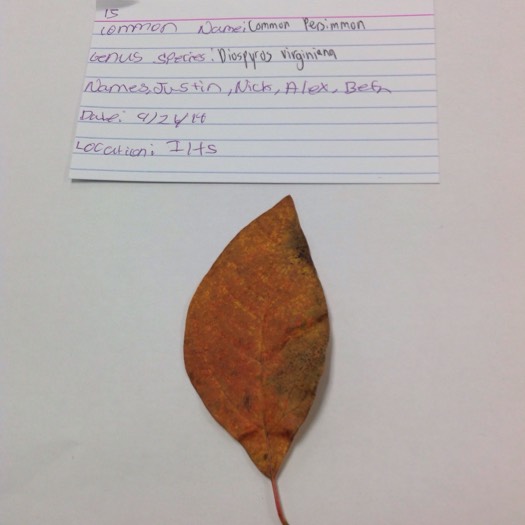 15
Common Name: Common Persimmon
Genus species: Diospyros virginiana
Names: Justin, Nick, Alex, Beth
Date: 9/24/14
Location: IHS